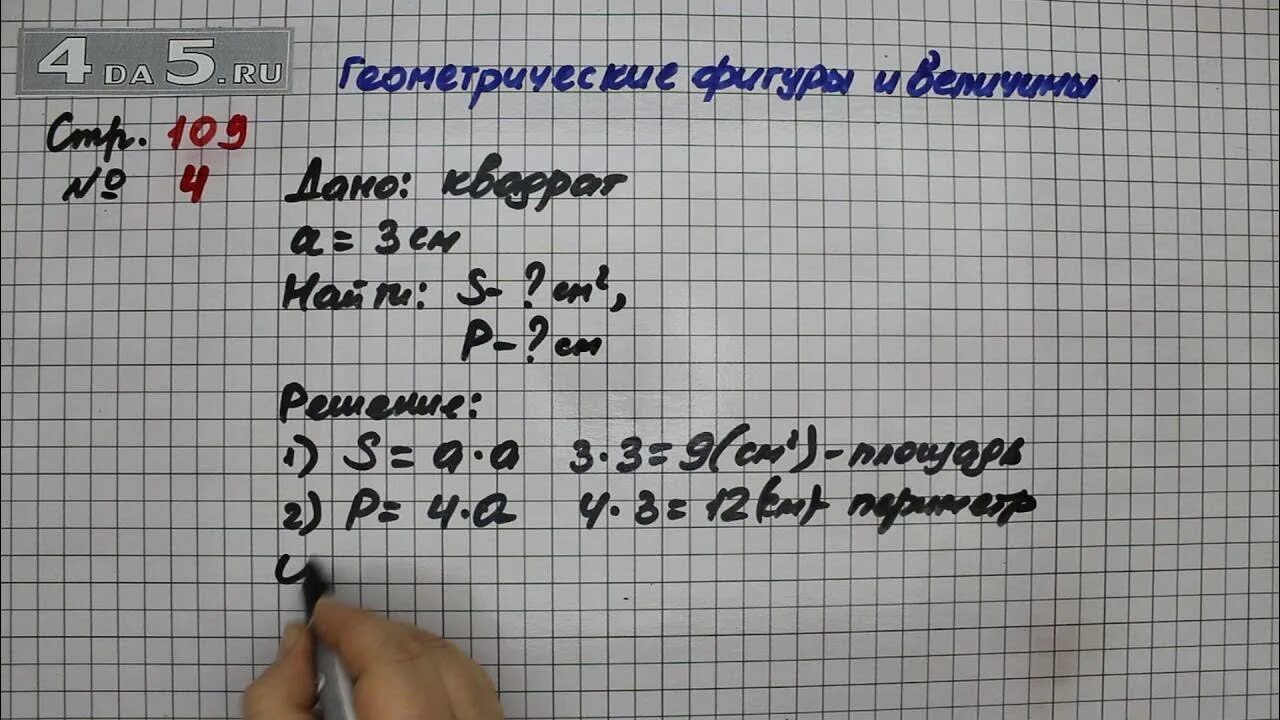 4 DA 5.RU
Геометрические фигуры и величины
Стр. 109
№ 4
Дано: квадрат
a = 3 см
Найти: S - ? см²,
P - ? см
Решение:
1) S = a · a 3 · 3 = 9 (см²) - площадь
2) P = 4 · a 4 · 3 = 12 (см) - периметр